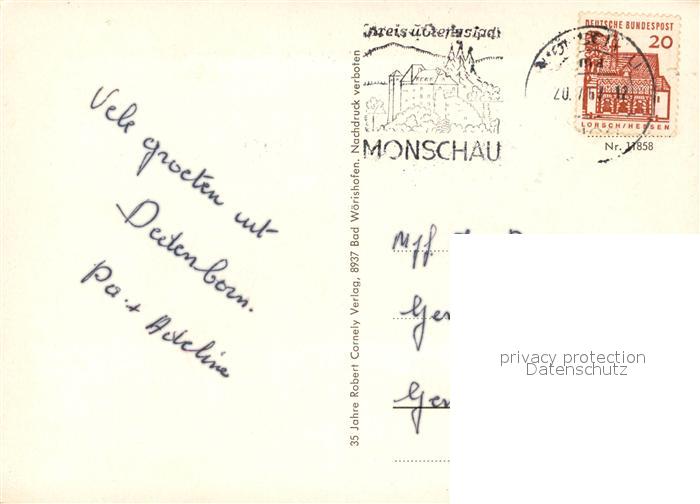 Vele groeten uit
Deetenborn.
Pa. + Adeline
35 Jahre Robert Cornely Verlag, 8937 Bad Wörishofen. Nachdruck verboten
Kreis u. Ferienstadt
MONSCHAU
20. 7. 67
DEUTSCHE BUNDESPOST
20
LORSCH/HESSEN
Nr. 11858
Mff.
Gen
Gen
privacy protection
Datenschutz